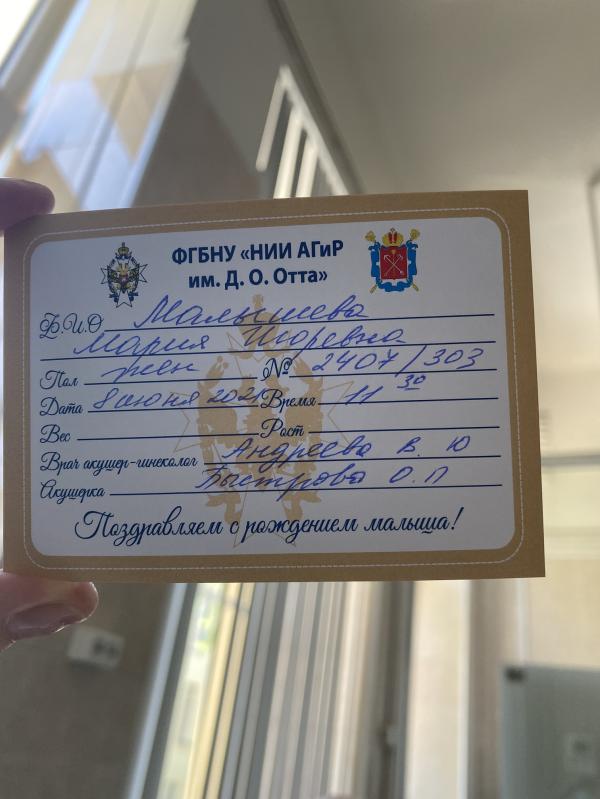 ФГБНУ «НИИ АГиР
им. Д. О. Отта»
Ф.И.О Малышева
Мария Игоревна
Пол жен № 2407/303
Дата 8 июня 2021 Время 11 30
Вес Рост
Врач акушер-гинеколог Андреева В. Ю
Акушерка Быстрова О. П
Поздравляем с рождением малыша!